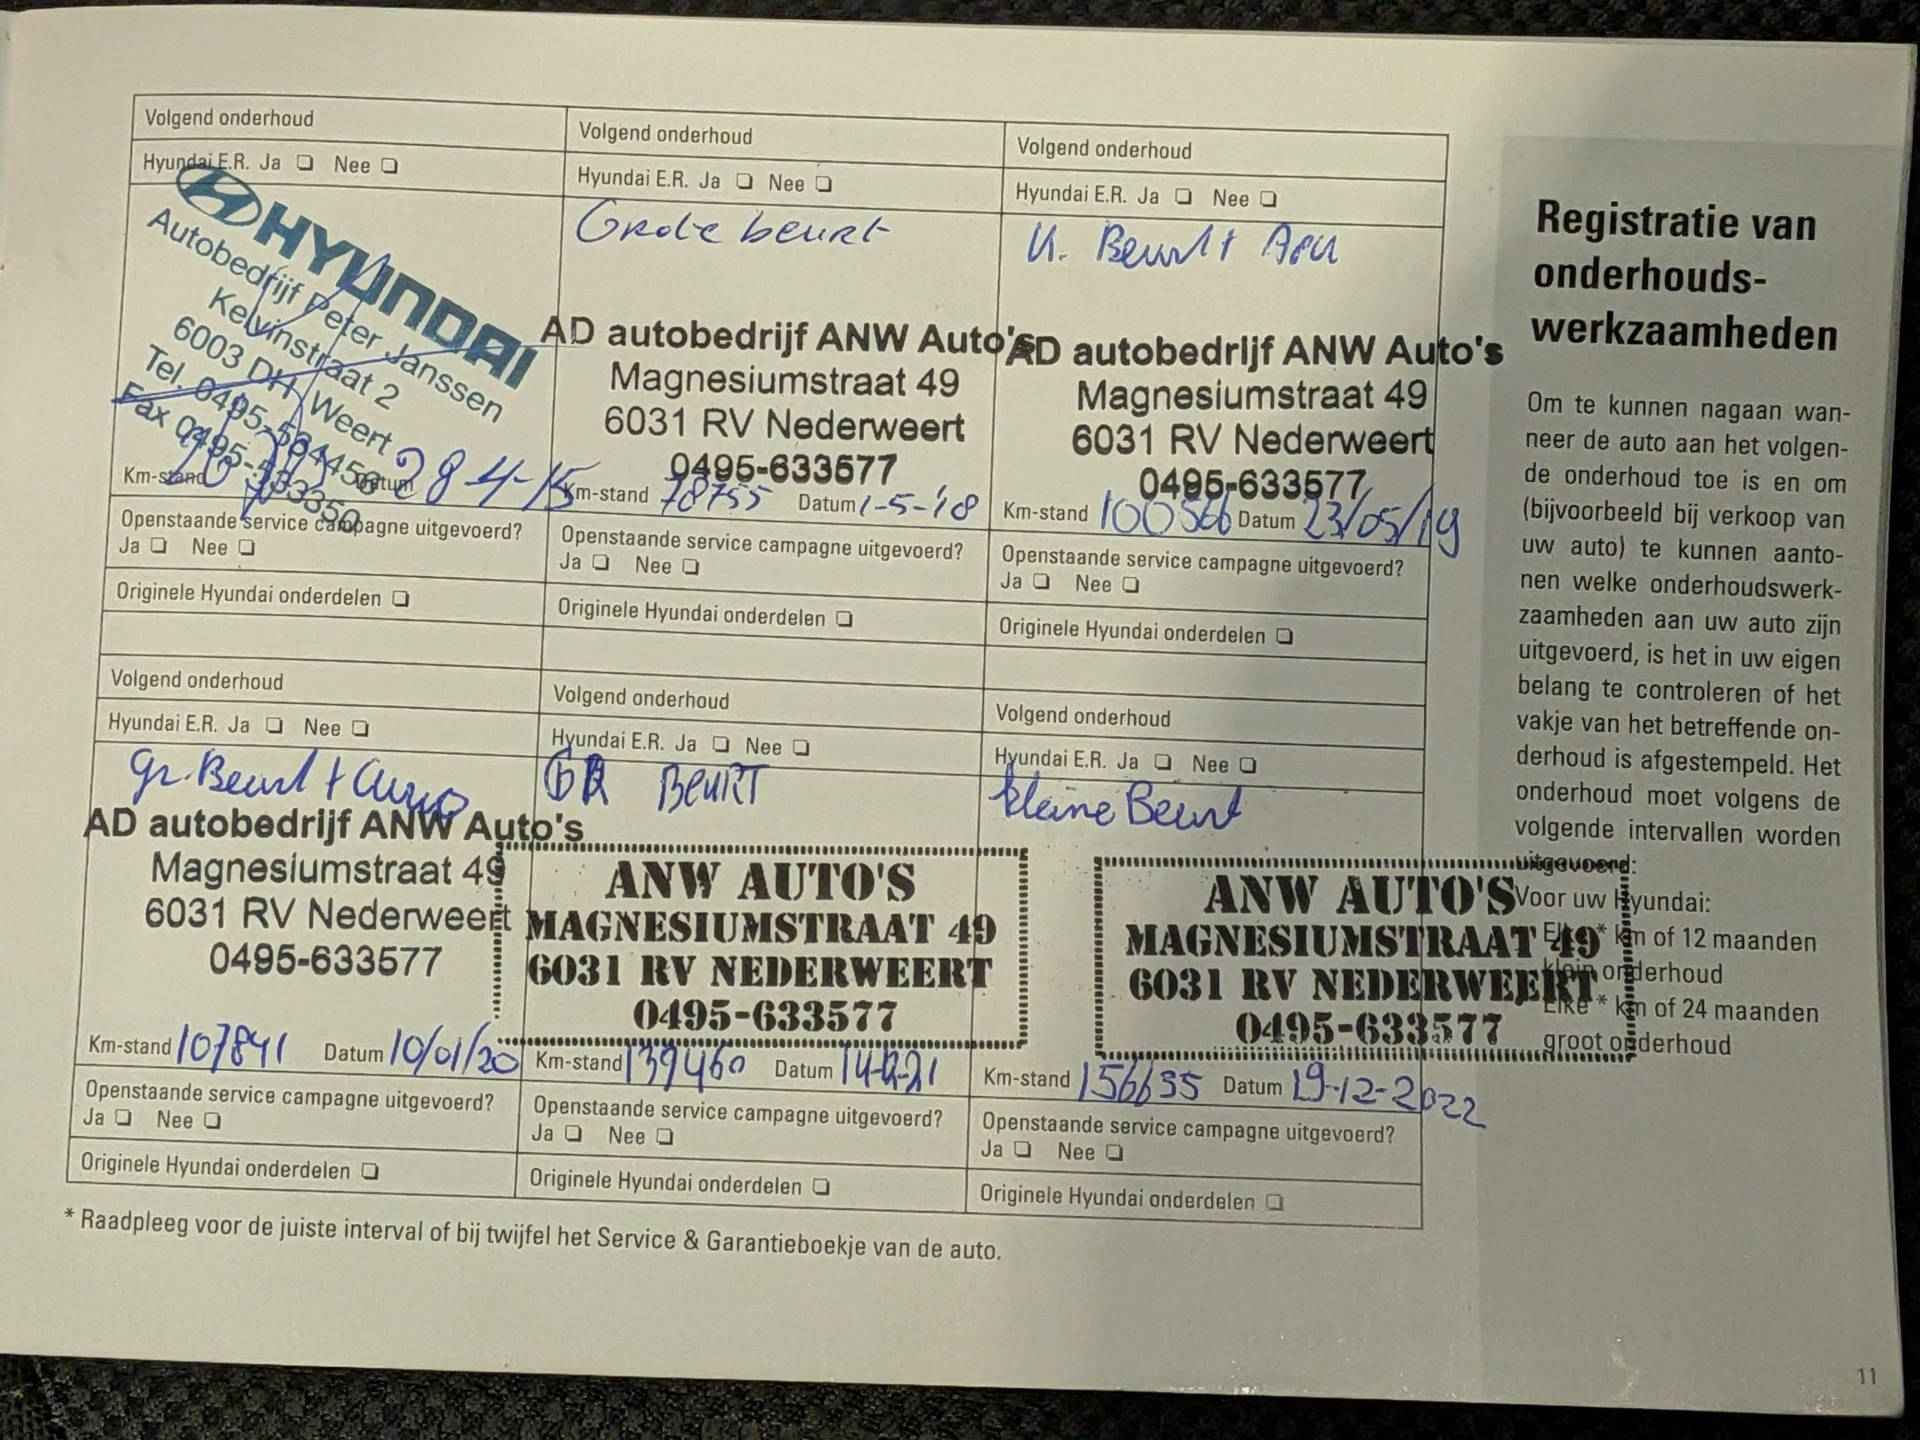 Volgend onderhoud
Hyundai E.R. Ja Nee
HYUNDAI
Autobedrijf Peter Janssen
Kelvinstraat 2
6003 DH Weert
Tel. 0495-534450
Fax 0495-533350
Km-stand Datum 28-4-15
Openstaande service campagne uitgevoerd?
Ja Nee
Originele Hyundai onderdelen
Volgend onderhoud
Hyundai E.R. Ja Nee
Grote beurt
AD autobedrijf ANW Auto's
Magnesiumstraat 49
6031 RV Nederweert
0495-633577
Km-stand 78755 Datum 1-5-'18
Openstaande service campagne uitgevoerd?
Ja Nee
Originele Hyundai onderdelen
Volgend onderhoud
Hyundai E.R. Ja Nee
Kl. Beurt +
AD autobedrijf ANW Auto's
Magnesiumstraat 49
6031 RV Nederweert
0495-633577
Km-stand 100566 Datum 23/05/19
Openstaande service campagne uitgevoerd?
Ja Nee
Originele Hyundai onderdelen
Volgend onderhoud
Hyundai E.R. Ja Nee
gr. Beurt +
AD autobedrijf ANW Auto's
Magnesiumstraat 49
6031 RV Nederweert
0495-633577
Km-stand 107841 Datum 10/01/20
Openstaande service campagne uitgevoerd?
Ja Nee
Originele Hyundai onderdelen
Volgend onderhoud
Hyundai E.R. Ja Nee
GR BEURT
ANW AUTO'S
MAGNESIUMSTRAAT 49
6031 RV NEDERWEERT
0495-633577
Km-stand 139460 Datum
Openstaande service campagne uitgevoerd?
Ja Nee
Originele Hyundai onderdelen
Volgend onderhoud
Hyundai E.R. Ja Nee
kleine Beurt
ANW AUTO'S
MAGNESIUMSTRAAT 49
6031 RV NEDERWEERT
0495-633577
Km-stand 156635 Datum 19-12-2022
Openstaande service campagne uitgevoerd?
Ja Nee
Originele Hyundai onderdelen
* Raadpleeg voor de juiste interval of bij twijfel het Service & Garantieboekje van de auto.
Registratie van
onderhouds-
werkzaamheden
Om te kunnen nagaan wan-
neer de auto aan het volgen-
de onderhoud toe is en om
(bijvoorbeeld bij verkoop van
uw auto) te kunnen aanto-
nen welke onderhoudswerk-
zaamheden aan uw auto zijn
uitgevoerd, is het in uw eigen
belang te controleren of het
vakje van het betreffende on-
derhoud is afgestempeld. Het
onderhoud moet volgens de
volgende intervallen worden
uitgevoerd:
Voor uw Hyundai:
Elke * km of 12 maanden
klein onderhoud
Elke * km of 24 maanden
groot onderhoud
11